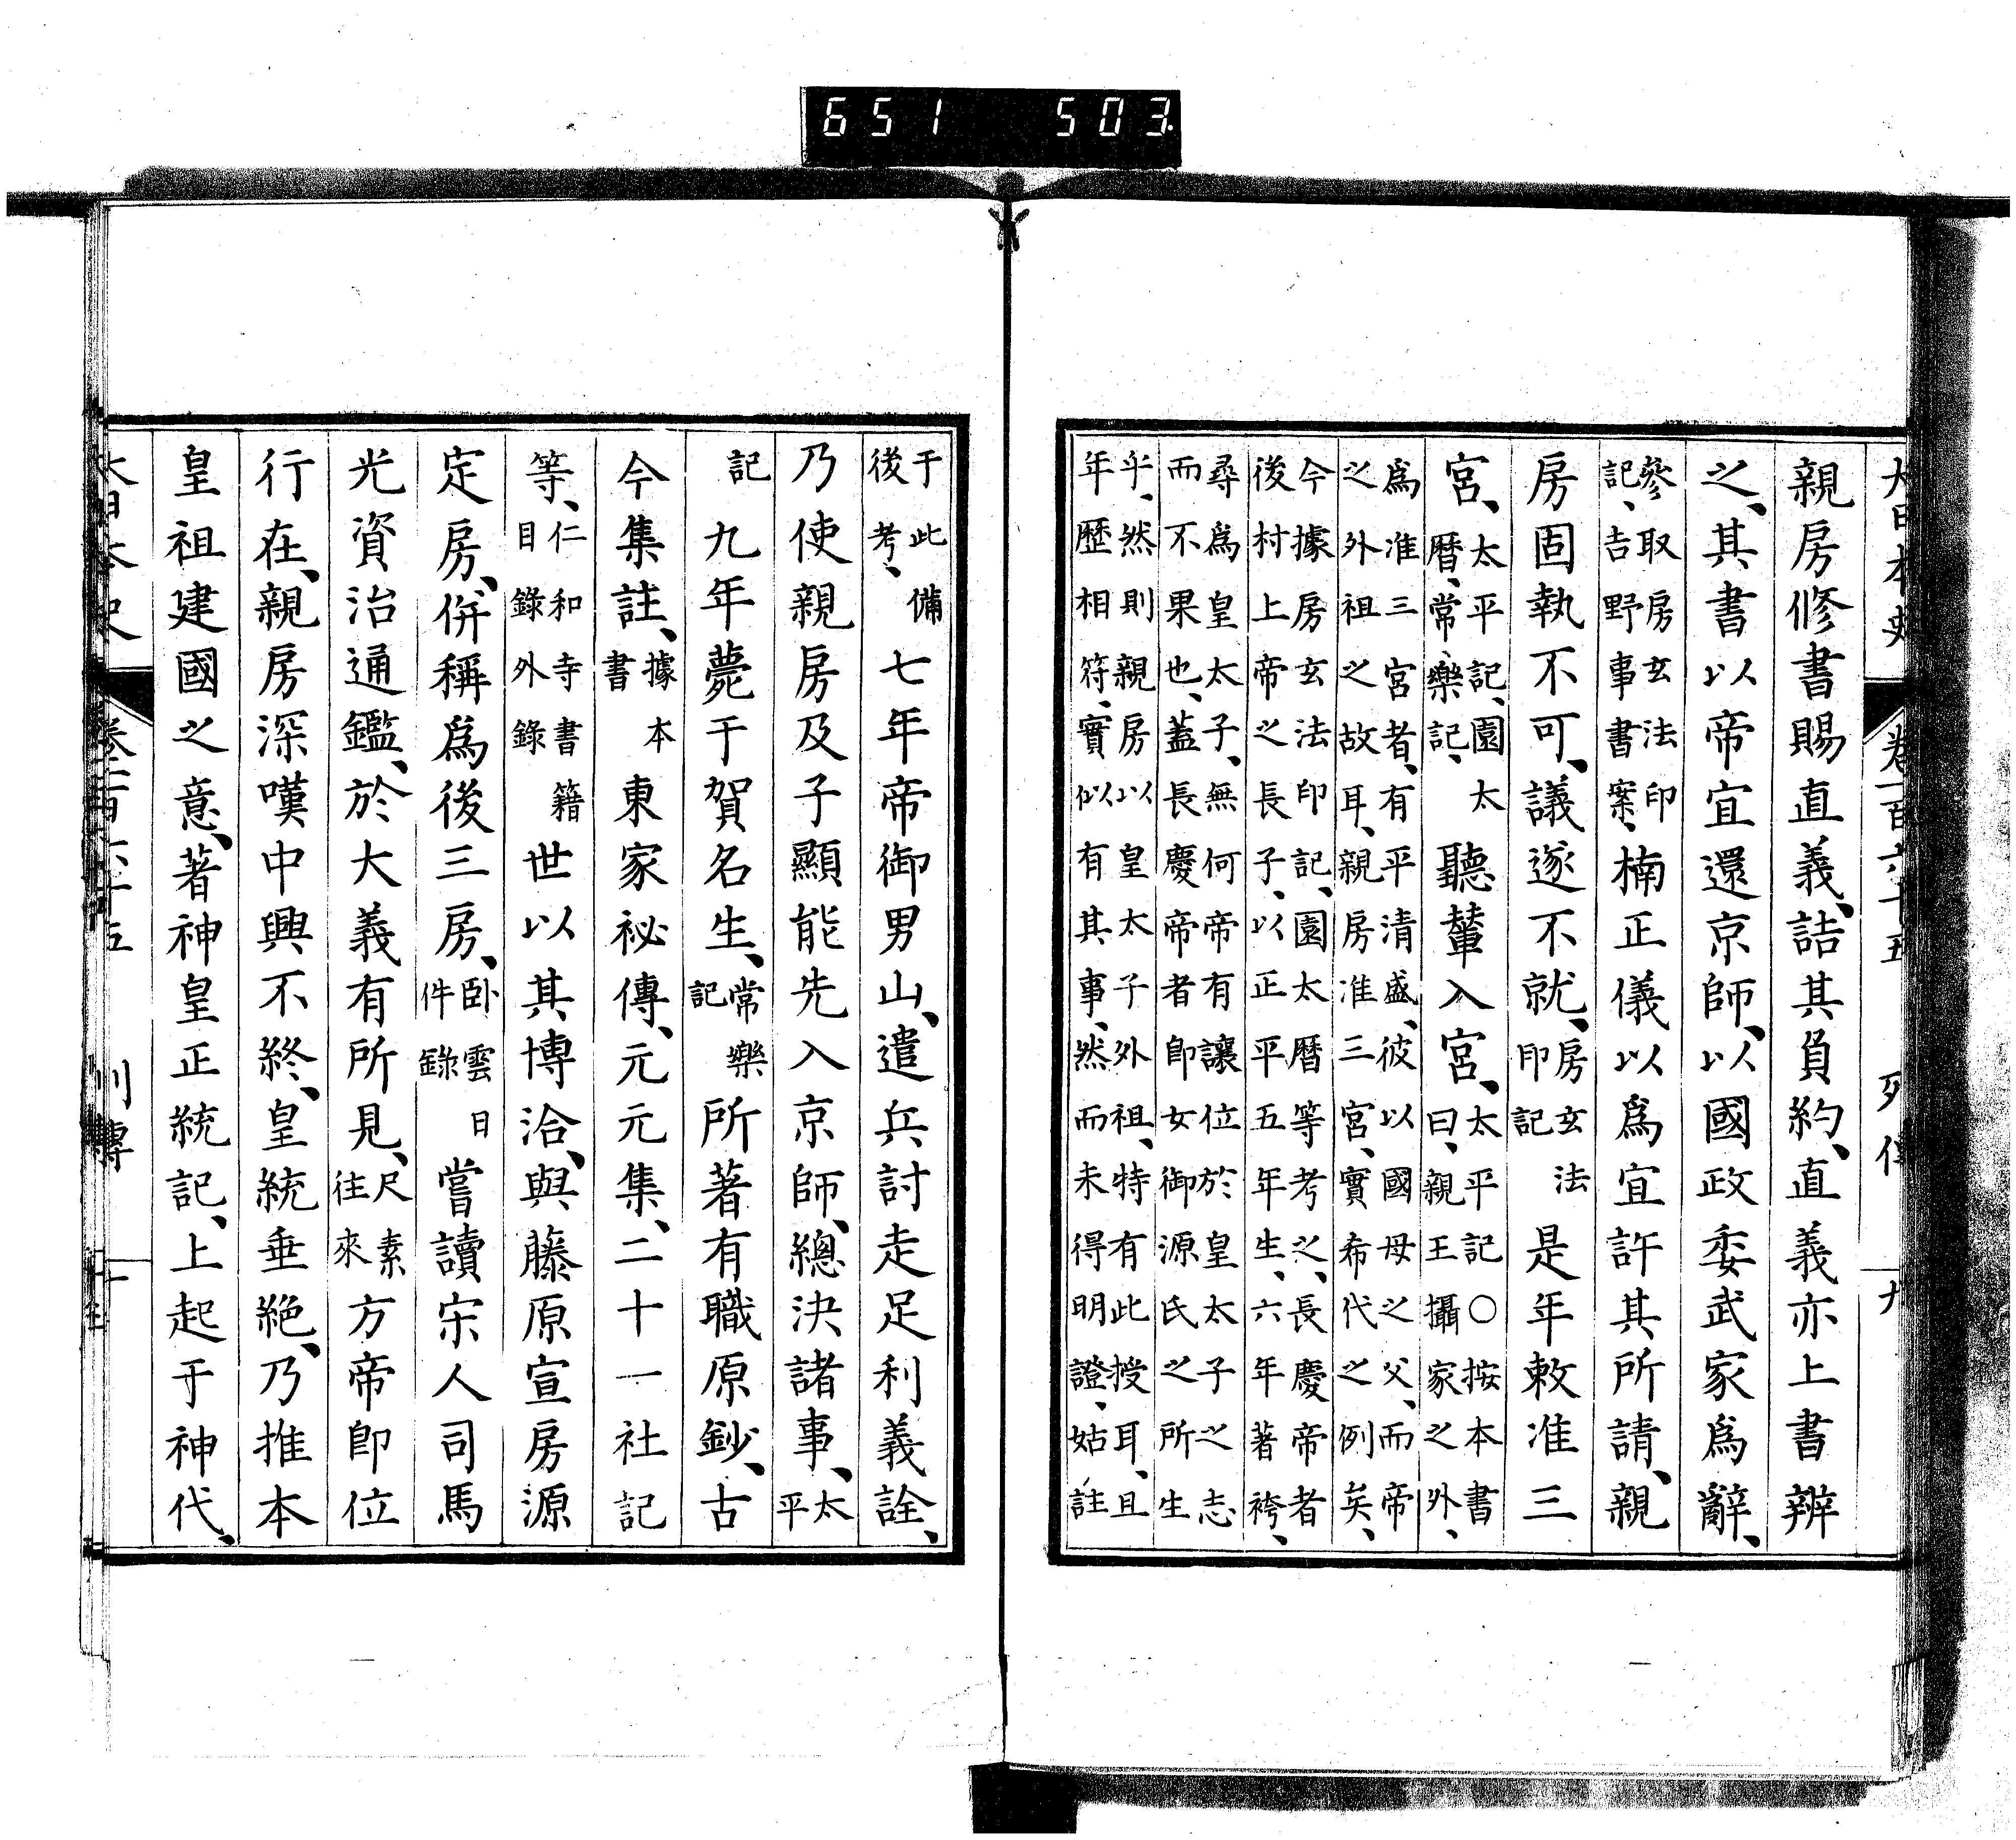 651 503
大日本史 卷一百六十五 列傳 九
親房修書賜直義、詰其負約、直義亦上書辨
之、其書以帝宜還京師、以國政委武家爲辭、
參取房玄法印記、吉野事書案、楠正儀以爲宜許其所請、親
房固執不可、議遂不就、房玄法印記是年敕准三
宮、太平記、園太曆、常樂記、聽輦入宮、太平記○按本書曰、親王攝家之外、
爲准三宮者、有平清盛、彼以國母之父、而帝之外祖之故耳、親房准三宮、實希代之例矣、
今據房玄法印記、園太曆等考之、長慶帝者後村上帝之長子、以正平五年生、六年著袴、
尋爲皇太子、無何帝有讓位於皇太子之志而不果也、蓋長慶帝者卽女御源氏之所生
乎、然則親房以皇太子外祖、特有此授耳、且年歷相符、實似有其事、然而未得明證、姑註
于此備後考、七年帝御男山、遣兵討走足利義詮、
乃使親房及子顯能先入京師、總決諸事、太平
記九年薨于賀名生、常樂記所著有職原鈔、古
今集註、據本書東家祕傳、元元集、二十一社記
等、仁和寺書籍目錄外錄世以其博洽、與藤原宣房源
定房、倂稱爲後三房、臥雲日件錄嘗讀宋人司馬
光資治通鑑、於大義有所見、尺素往來方帝卽位
行在、親房深嘆中興不終、皇統垂絕、乃推本
皇祖建國之意、著神皇正統記、上起于神代、
大日本史 卷一百六十五 列傳 十